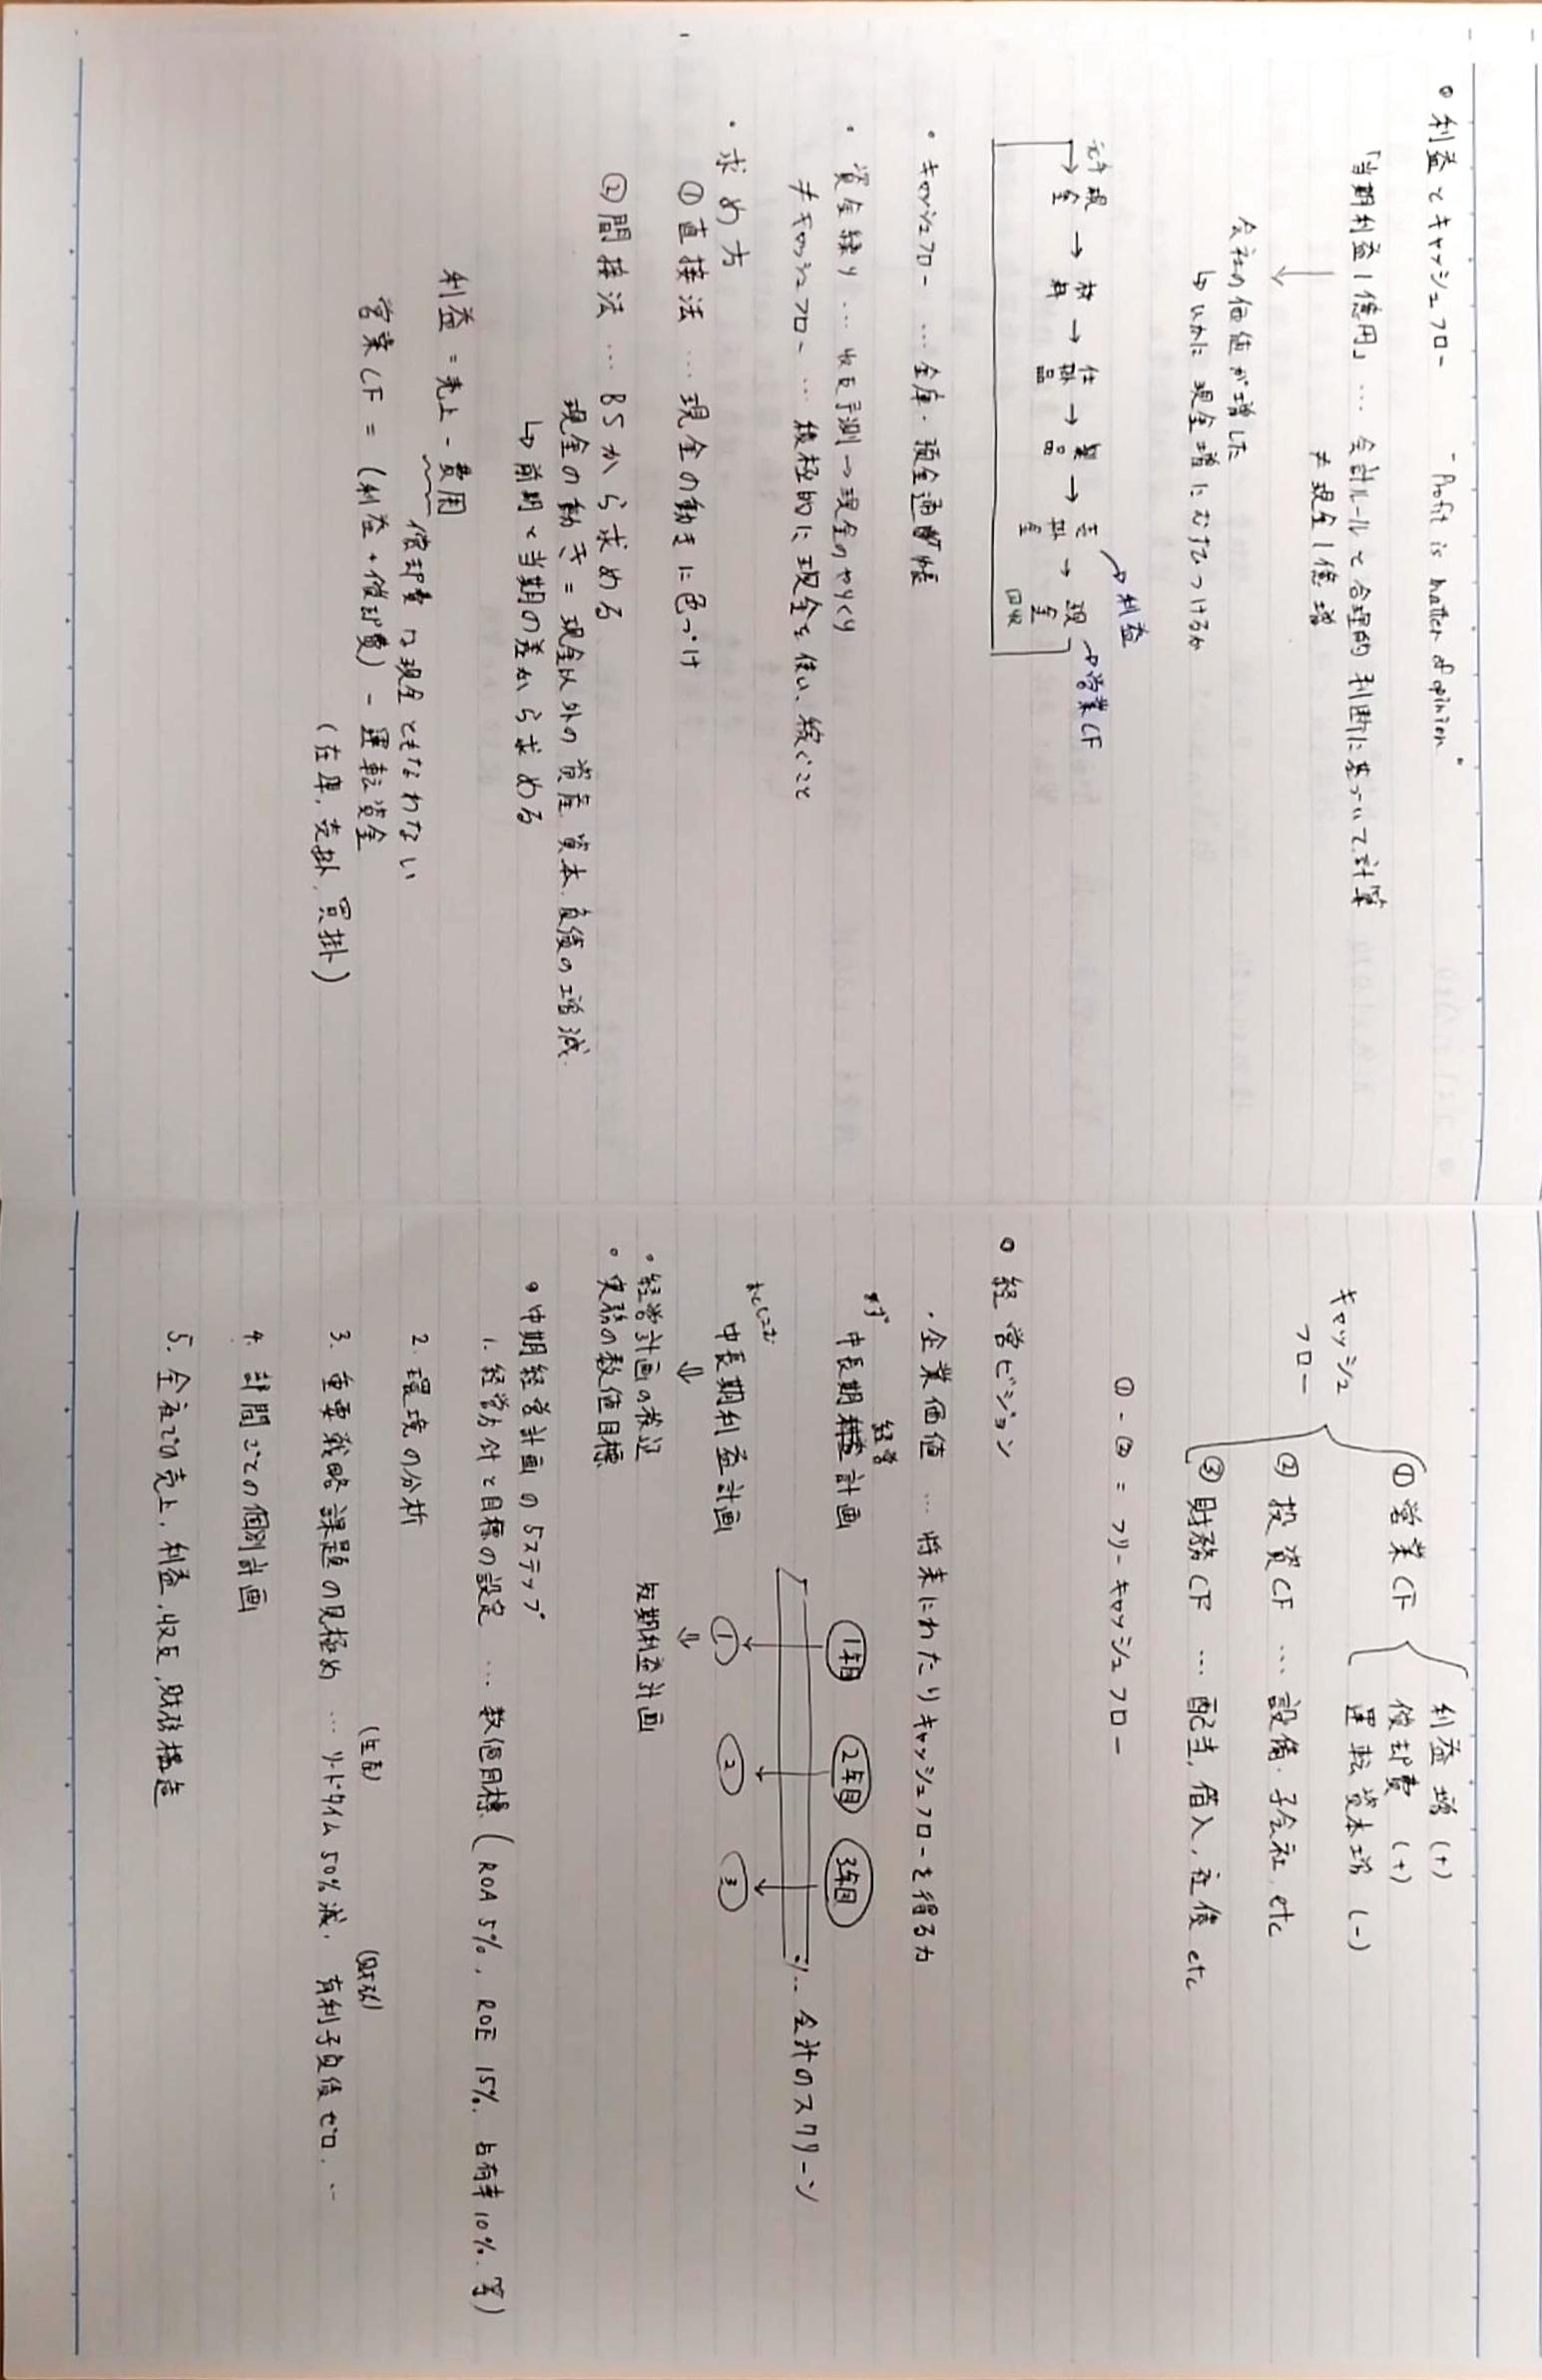 利益とキャッシュフロー "Profit is matter of opinion"
「当期利益1億円」… 会計ルールと合理的判断に基づいて計算
≠ 現金1億増
会社の価値が増した
↳ いかに現金増にむすびつけるか
元手 現金 → 材料 → 仕掛品 → 製品 → 売掛金 → 現金 回収
→ 利益
→ 営業CF
・キャッシュフロー … 金庫・預金通帳
・資金繰り … 収支予測 → 現金のやりくり
≠ キャッシュフロー … 積極的に現金を使い、稼ぐこと
・求め方
① 直接法 … 現金の動きに色づけ
② 間接法 … BSから求める
現金の動き = 現金以外の資産. 資本. 負債の増減.
↳ 前期と当期の差から求める
利益 = 売上 - 費用
償却費は現金ともなわない
営業CF = (利益 + 償却費) - 運転資金
(在庫, 売掛, 買掛)
キャッシュフロー
① 営業CF
利益増 (+)
償却費 (+)
運転資本増 (-)
② 投資CF … 設備・子会社, etc
③ 財務CF … 配当, 借入, 社債 etc
① - ② = フリーキャッシュフロー
経営ビジョン
・企業価値 … 将来にわたりキャッシュフローを得る力
まず 中長期経営計画 1年目 2年目 3年目
… 会計のスクリーン
おとしこむ 中長期利益計画 1 2 3
⇓ ⇓
・経営計画の検証 短期利益計画
・実務の数値目標
中期経営計画の5ステップ
1. 経営方針と目標の設定 … 数値目標 (ROA 5%, ROE 15%, 占有率10%, 等)
2. 環境の分析
(生産) (財務)
3. 重要戦略課題の見極め … リードタイム50%減, 有利子負債ゼロ, …
4. 部門ごとの個別計画
5. 全社での売上, 利益, 収支, 財務構造